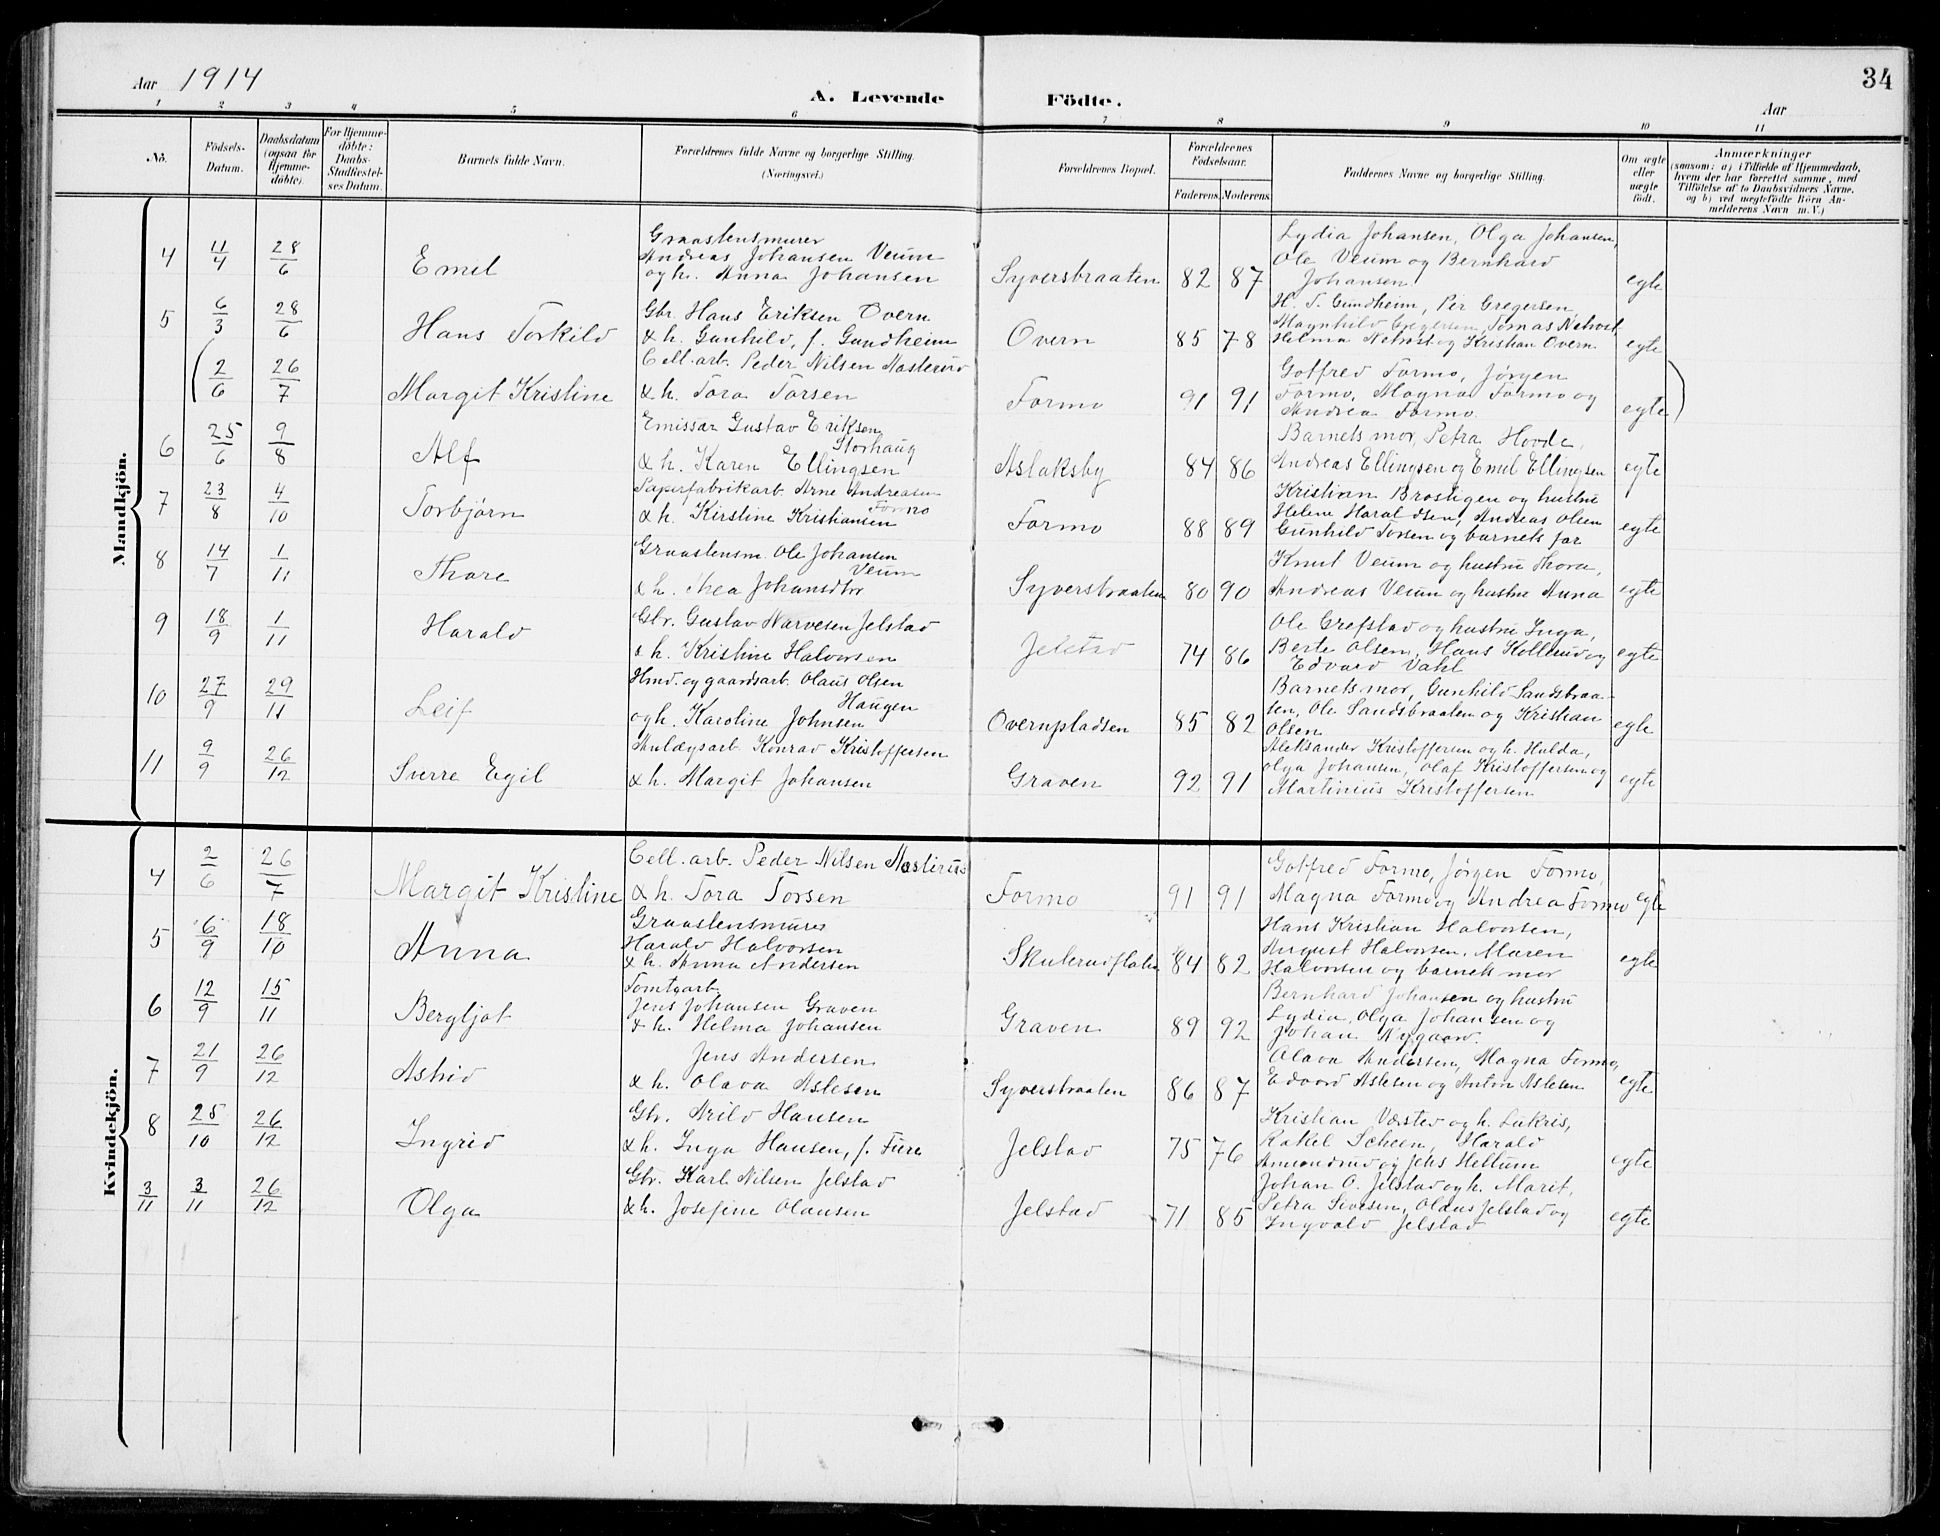 Aar 1914
A. Levende Födte.
Aar
34
1 2 3 4 5 6 7 8 9 10 11
No.
Födsels-Datum.
Daabsdatum (ogsaa for Hjemme-döbte).
For Hjemme-döbte: Daabs-Stadfæstel-ses Datum.
Barnets fulde Navn.
Forældrenes fulde Navne og borgerlige Stilling. (Næringsvei.)
Forældrenes Bopæl.
Forældrenes Födselsaar.
Faderens. Moderens.
Faddernes Navne og borgerlige Stilling.
Om ægte eller uægte födt.
Anmærkninger
(saasom: a) i Tilfælde af Hjemmedaab,
hvem der har forrettet samme, med
Tilföielse af to Daabsvidners Navne.
og b) ved uægtefödte Börn An-
melderens Navn m. V.)
Mandkjön.
4 11/4 28/6 Emil
Graastensmurer
Andreas Johansen Veum
og h. Anna Johansen
Syversbraaten 82 87
Lydia Johansen, Olga Johansen,
Ole Veum og Bernhard
Johansen
egte
5 6/3 28/6 Hans Torkild
Gbr. Hans Eriksen Overn
& h. Gunhild, f. Gundheim
Overn 85 78
H. T. Gundheim, Per Gregersen,
Magnhild Gregersen, Tomas
Helma og Kristian Overn
egte
(2/6 26/7 Margit Kristine
Cell. arb. Peder Nilsen
& h. Tora Torsen
Formo 91 91
Gotfred Formo, Jørgen
Formo, Magna Formo og
Andrea Formo.
egte)
6 25/6 9/8 Alf
Emissær Gustav Eriksen
Storhaug
& h. Karen Ellingsen
Aslaksby 84 86
Barnets mor, Petra Hovde,
Andreas Ellingsen og Emil Ellingsen
egte
7 23/8 4/10 Torbjørn
Papirfabrikarb. Arne Andreasen
Formo
& h. Kirstine Kristiansen
Formo 88 89
Kristian Brostigen og hustru
Helene Haraldsen, Andreas Olsen
Gunhild Torsen og barnets far
egte
8 14/7 1/11 Thore
Graastensm. Ole Johansen
Veum
& h. Thea Johansdtr
Syversbraaten 80 90
Knut Veum og hustru Thora,
Andreas Veum og hustru Anna
egte
9 18/9 1/11 Harald
Gbr. Gustav Narvesen Jelstad
& h. Kristine Halvorsen
Jelstad 74 86
Ole Grefstad og hustru Inga,
Berte Olsen, Hans Kollerud og
Edvard Dahl
egte
10 27/9 29/11 Leif
Hmd. og gaardsarb. Olaus Olsen
Haugen
og h. Karoline Johnsen
Overnpladsen 85 82
Barnets mor, Gunhild Sandsbraa-
ten, Ole Sandsbraaten og Kristian
Olsen
egte
11 9/9 26/12 Sverre Egil
Anlægsarb. Konrad Kristoffersen
& h. Margit Johansen
Graven 92 91
Aleksander Kristoffersen og h. Hulda,
Olga Johansen, Olaf Kristoffersen og
Martinius Kristoffersen
egte
Kvindekjön.
4 2/6 26/7 Margit Kristine
Cell. arb. Peder Nilsen
& h. Tora Torsen
Formo 91 91
Gotfred Formo, Jørgen Formo,
Magna Formo og Andrea Formo
egte
5 6/9 18/10 Anna
Graastensmurer
Harald Halvorsen
& h. Anna Andersen
84 82
Hans Kristian Halvorsen,
August Halvorsen, Maren
Halvorsen og barnets mor
egte
6 12/9 15/11 Bergljot
Tomtgarb.
Jens Johansen Graven
& h. Helma Johansen
Graven 89 92
Bernhard Johansen og hustru
Lydia, Olga Johansen og
Johan Nygaard.
7 21/9 26/12 Astrid
Jens Andersen
& h. Olava Aslesen
Syversbraaten 86 87
Olava Andersen, Magna Formo,
Edvard Aslesen og Anton Aslesen
egte
8 25/10 26/12 Ingrid
Gbr. Arild Hansen
& h. Inga Hansen, f. Fure
Jelstad 75 76
Kristian Værsted og h. Lukris,
Rakel Scheen, Harald
Amundrud og Jens Heltum
egte
3/11 3/11 26/12 Olga
Gbr. Karl Nilsen Jelstad
& h. Josefine Olausen
Jelstad 71 85
Johan O. Jelstad og h. Marit,
Petra Sivesen, Olaus Jelstad og
Ingvald Jelstad
egte